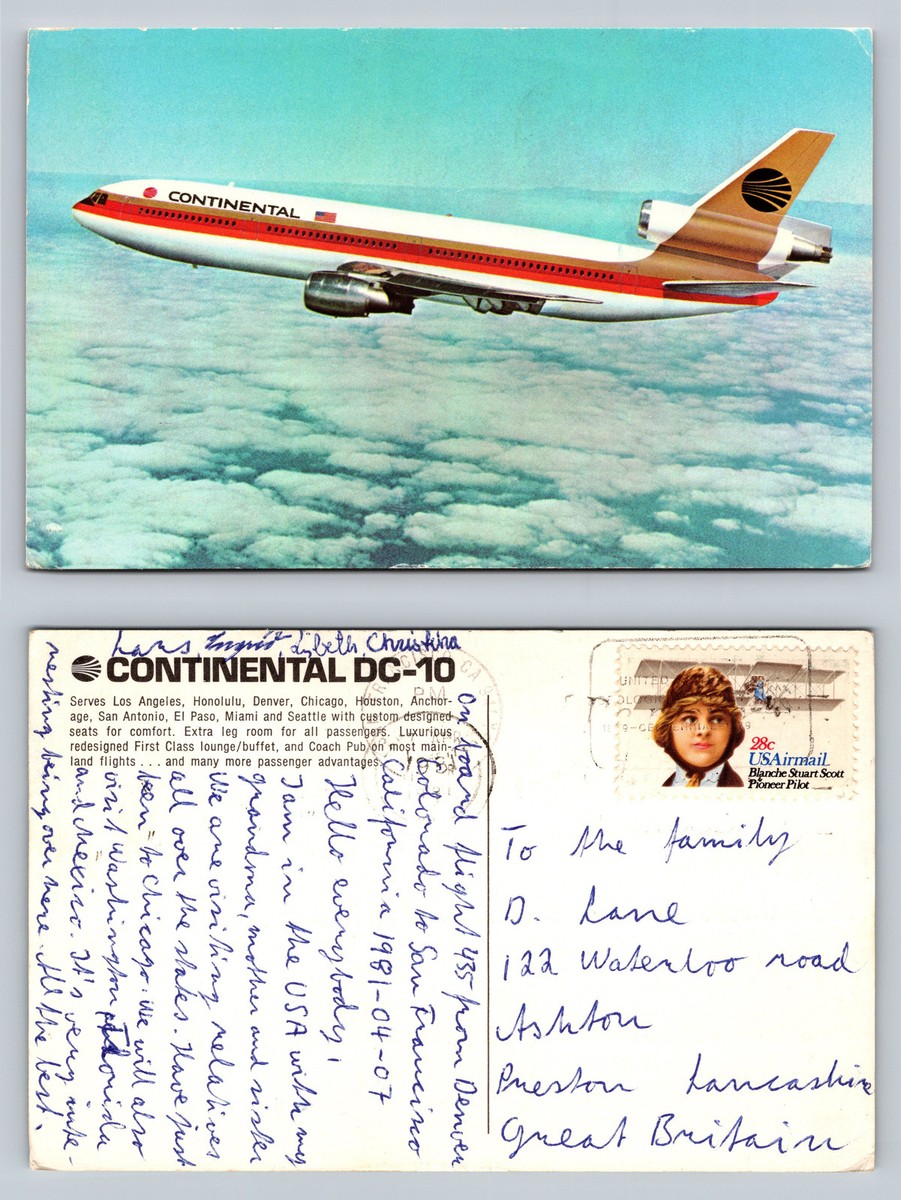 CONTINENTAL
Lars, Ingrid, Lisbeth, Christina
CONTINENTAL DC-10
Serves Los Angeles, Honolulu, Denver, Chicago, Houston, Anchor-
age, San Antonio, El Paso, Miami and Seattle with custom designed
seats for comfort. Extra leg room for all passengers. Luxurious
redesigned First Class lounge/buffet, and Coach Pub on most main-
land flights . . . and many more passenger advantages.
On board flight 435 from Denver
Colorado to San Francisco
California 1981-04-07
Hello everybody!
I am in the USA with my
grandma, mother and sister
We are visiting relatives
all over the states. Have just
been to Chicago. We will also
visit Washington, Florida
and Mexico. It's very inte-
resting being over here. All the best.
PM
UNITED
28c
USAirmail
Blanche Stuart Scott
Pioneer Pilot
To the family
D. Lane
122 Waterloo road
Ashton
Preston Lancashire
Great Britain